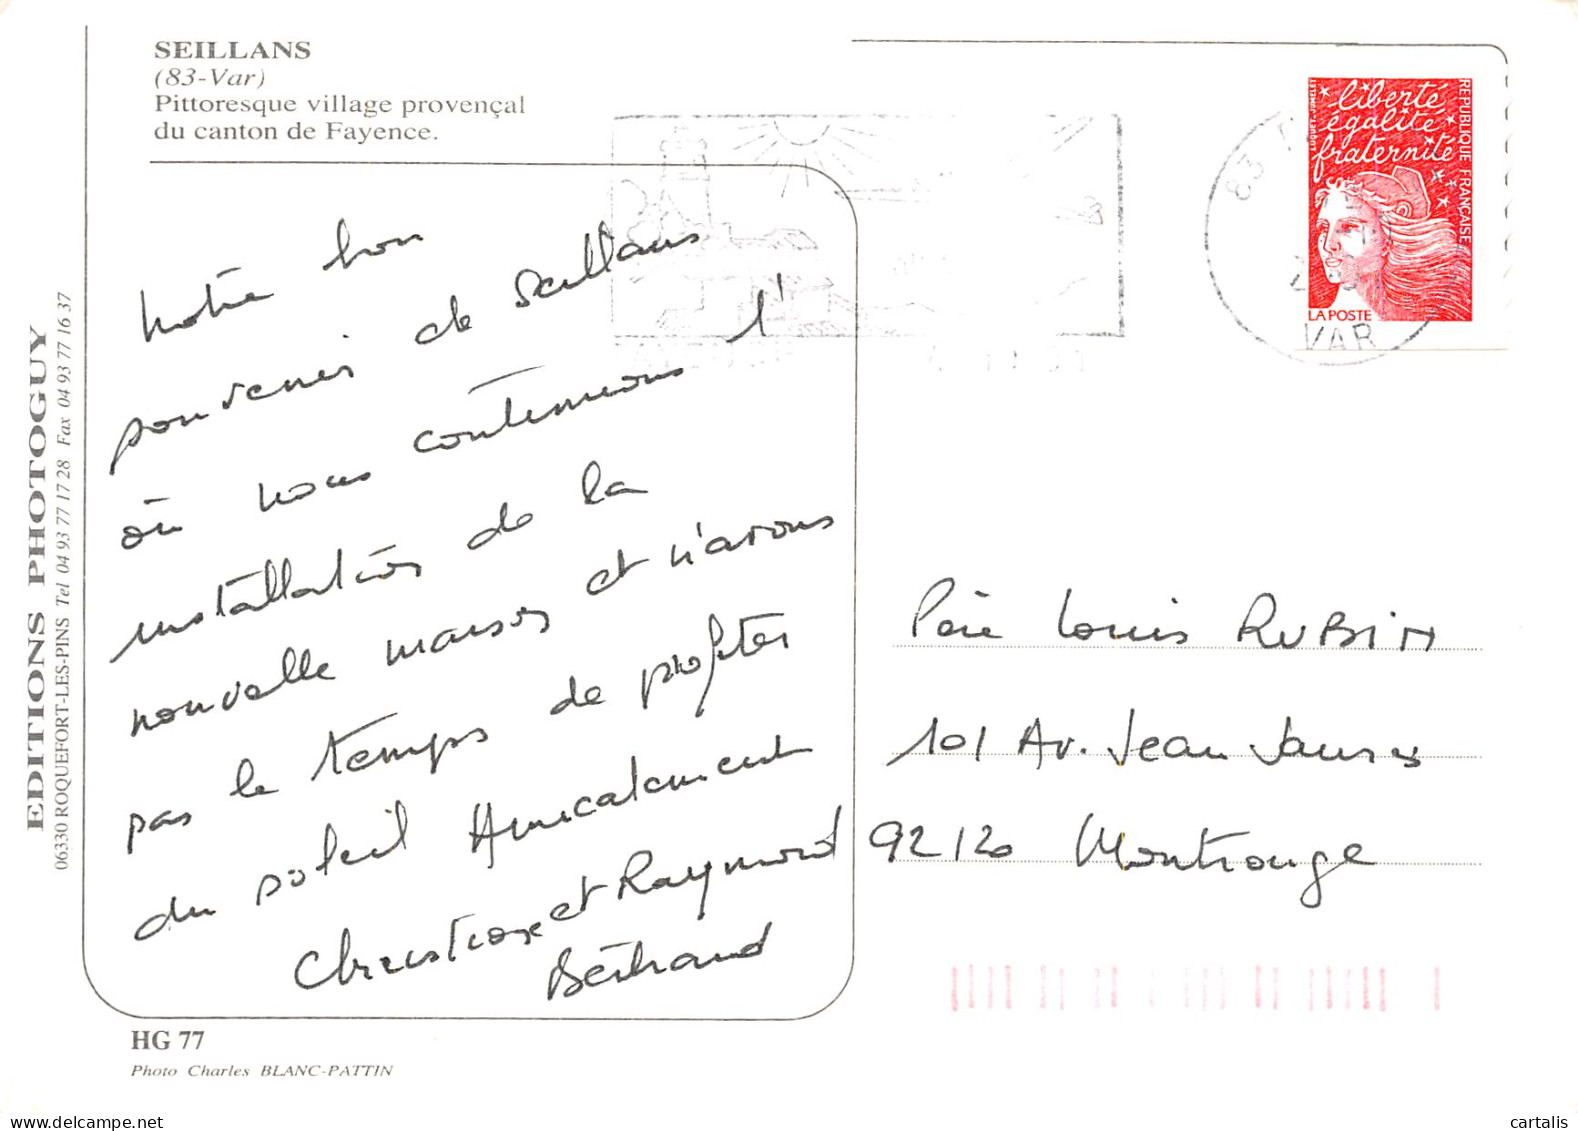 SEILLANS
(83-Var)
Pittoresque village provençal
du canton de Fayence.
Notre bon
souvenir de Seillans
où nous continuons l'
installation de la
nouvelle maison et n'avons
pas le temps de profiter
du soleil Amicalement
Christiane et Raymond
Bertrand
EDITIONS PHOTOGUY
06330 ROQUEFORT-LES-PINS Tel 04 93 77 17 28 Fax 04 93 77 16 37
HG 77
Photo Charles BLANC-PATTIN
liberté
égalité
fraternité
REPUBLIQUE FRANÇAISE
LUQUET-JUMELET
LA POSTE
83
VAR
Père Louis RUBIN
101 Av. Jean Jaurès
92120 Montrouge
cartalis.delcampe.net